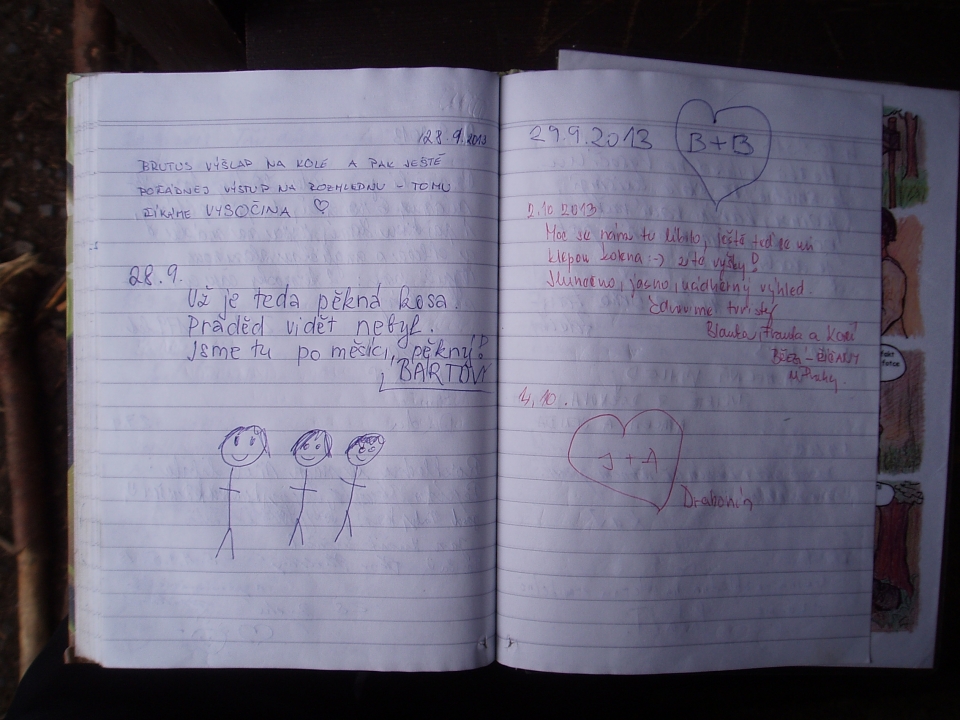 28.9.2013
BRUTUS VÝŠLAP NA KOLE A PAK JEŠTĚ
POŘÁDNEJ VÝSTUP NA ROZHLEDNU - TOMU
ŘÍKÁME VYSOČINA ♡
28.9.
Už je teda pěkná kosa.
Praděd vidět nebyl.
Jsme tu po měsíci, pěkný
BARTOVI
29.9.2013 B+B
2.10 2013
Moc se nám tu líbilo, ještě teď se mi
klepou kolena :-) z té výšky!
Slunečno, jasno, nádherný výhled.
Zdravíme turisty
Blanka, Franta a
ŘÍČANY
u Prahy.
4.10.
J + A
Drahonín
fakt